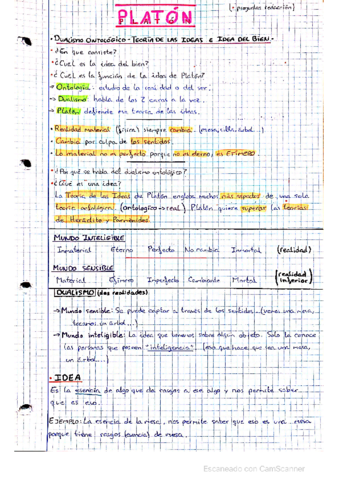 PLATÓN
(* preguntas redacción)
• DUALISMO ONTOLÓGICO - TEORÍA DE LAS IDEAS E IDEA DEL BIEN •
* ¿En que consiste?
* ¿Cual es la idea del bien?
* ¿Cual es la función de la idea de Platón?
→ Ontología: estudio de la realidad o del ser.
→ Dualismo: habla de las 2 caras a la vez.
→ Platón defiende esa teoría de las ideas.
• Realidad material (física) siempre cambia. (mesa, silla, árbol...)
• Cambia por culpa de los sentidos.
• La material no es perfecto porque no es eterno, es EFÍMERO.
* ¿Por qué se habla del dualismo ontológico?
* ¿Qué es una idea?
La Teoría de las Ideas de Platón engloba muchos más aspectos de una sola
teoría ontológica (ontológico → real). Platón quiere superar las teorías
de Heráclito y Parménides.
MUNDO INTELIGIBLE
Inmaterial Eterno Perfecto No cambia Inmortal (realidad)
MUNDO SENSIBLE
Material Efímero Imperfecto Cambiante Mortal (realidad inferior)
DUALISMO (dos realidades)
→ Mundo sensible: Se puede captar a través de los sentidos... (vemos una mesa,
tocamos un árbol...)
→ Mundo inteligible: La idea que tenemos sobre algún objeto. Solo la conoce
las personas que poseen "inteligencia". (esa que hace que sea una mesa,
un árbol...)
• IDEA
Es la esencia de algo que da rasgos a ese algo y nos permite saber
que es eso.
EJEMPLO: La esencia de la mesa, nos permite saber que eso es una mesa
porque tiene rasgos (esencia) de mesa.
Escaneado con CamScanner